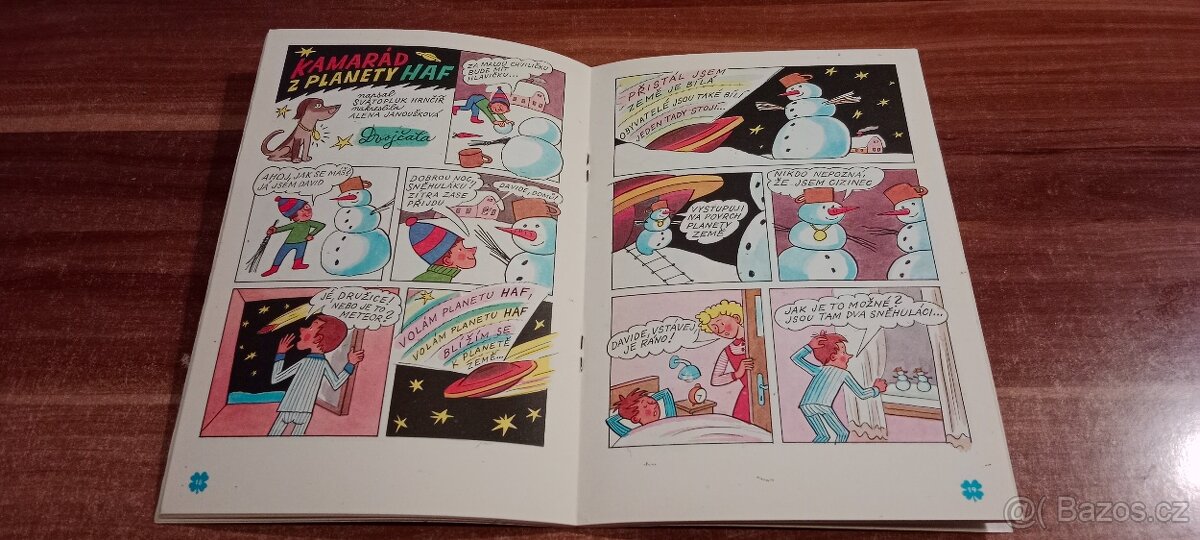 KAMARÁD
Z PLANETY HAF
napsal
SVATOPLUK HRNČÍŘ
nakreslila
ALENA JANOUŠKOVÁ
Dvojčata
ZA MALOU CHVILIČKU
BUDE MÍT
HLAVIČKU...
AHOJ, JAK SE MÁŠ?
JÁ JSEM DAVID
DOBROU NOC,
SNĚHULÁKU!
ZÍTRA ZASE
PŘIJDU
DAVIDE, DOMŮ!
JÉ, DRUŽICE!
NEBO JE TO
METEOR?
VOLÁM PLANETU HAF,
VOLÁM PLANETU HAF
BLÍŽÍM SE
K PLANETĚ
ZEMĚ...
18
PŘISTÁL JSEM
ZEMĚ JE BÍLÁ
OBYVATELÉ JSOU TAKÉ BÍLÍ
JEDEN TADY STOJÍ...
VYSTUPUJI
NA POVRCH
PLANETY
ZEMĚ
NIKDO NEPOZNÁ,
ŽE JSEM CIZINEC
DAVIDE, VSTÁVEJ,
JE RÁNO!
JAK JE TO MOŽNÉ?
JSOU TAM DVA SNĚHULÁCI...
19
Bazos.cz